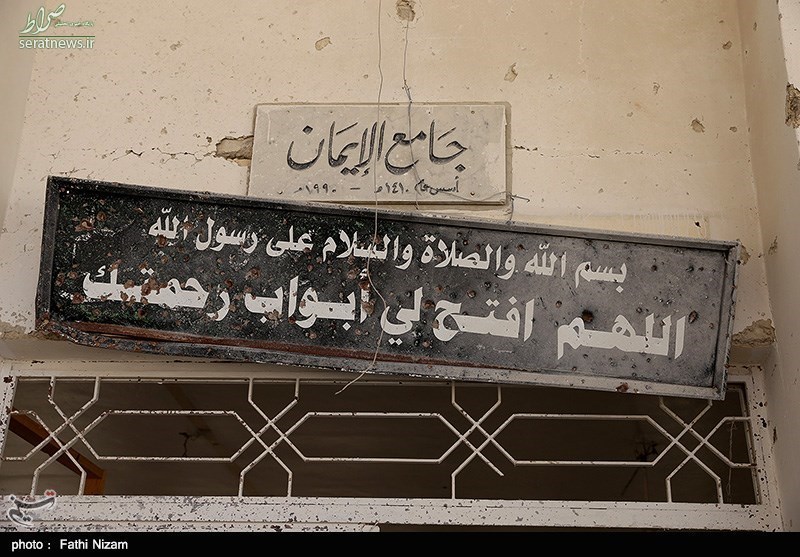 صراط
seratnews.ir
جامع الإيمان
أسس عام ١٤١٠هـ - ١٩٩٠م
بسم الله والصلاة والسلام على رسول الله
اللهم افتح لي أبواب رحمتك
photo : Fathi Nizam